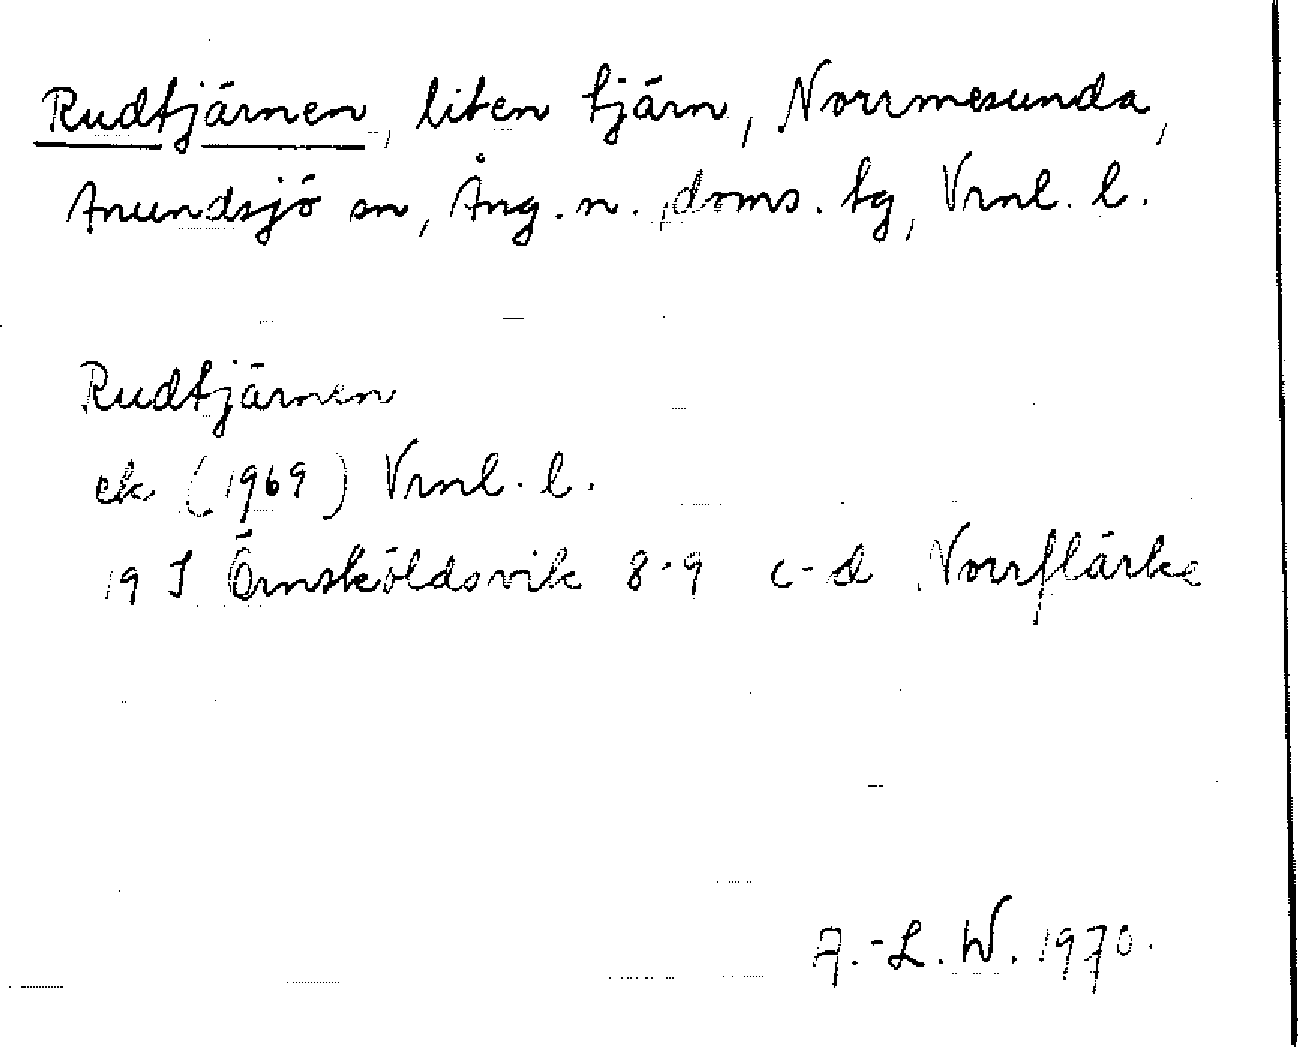 Rudtjärnen, liten tjärn, Norrmesunda,
Anundsjö sn, Ång. n. doms. tg, Vrnl. l.
Rudtjärnen
ek (1969) Vrnl. l.
19 J Örnsköldsvik 8-9 c-d Norrflärke
A.-L. W. 1970.